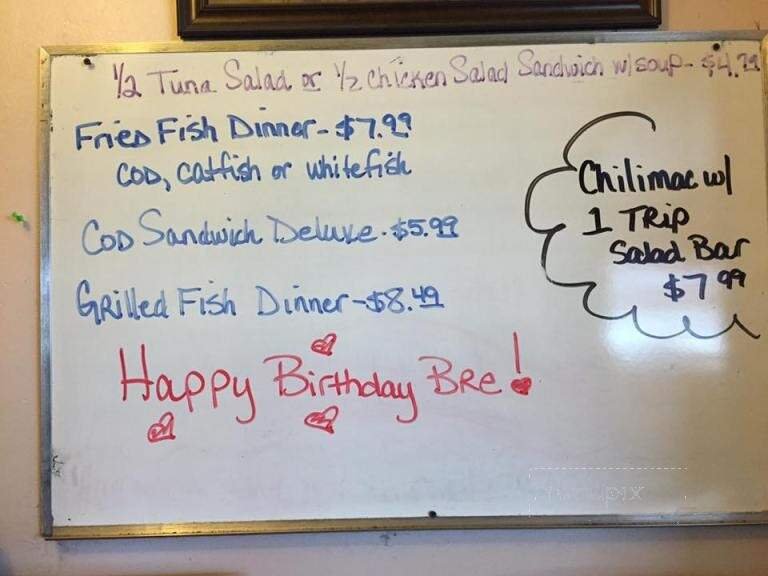 1/2 Tuna Salad or 1/2 Chicken Salad Sandwich w/soup- $4.79
Fried Fish Dinner - $7.99
COD, Catfish or whitefish
COD Sandwich Deluxe - $5.99
Grilled Fish Dinner - $8.49
Chilimac w/
1 TRip
Salad Bar
$7 99
Happy Birthday BRe!